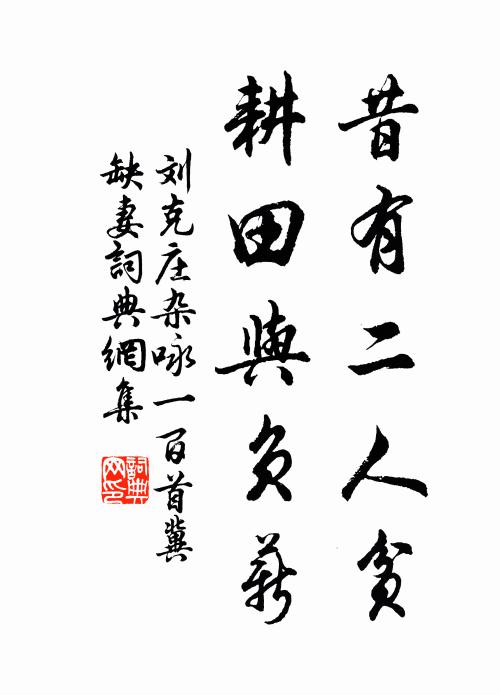 昔有二人貧
耕田與負薪
刘克庄杂咏一百首冀
缺妻詞典網集
詞典网印